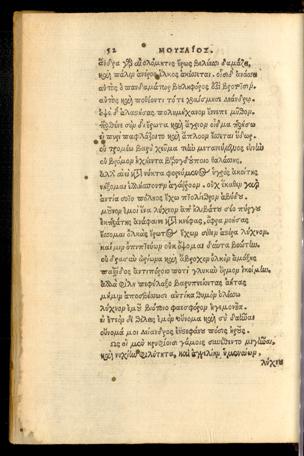 52 ΜΟΥΣΑΙΟΣ.
ἄνδρα γὰρ αἰολόμητις ἔρως βελέεσσι δαμάζει,
καὶ πάλιν ἀνέρος ἕλκος ἀκέσσεται. οἷσι δ' ἀνάσσει
αὐτὸς ὁ πανδαμάτωρ βουληφόρος ἐστὶ βροτοῖσιν.
αὐτὸς καὶ ποθέοντι τότε χραίσμησε λεάνδρῳ.
ὀψὲ δ' ἀλαστήσας πολυμήχανον ἔννεπε μῦθον.
παρθένε σὸν δι' ἔρωτα καὶ ἄγριον οἶδμα περήσω
εἰ πυρὶ παφλάζοιτο καὶ ἄπλοον ἔσσεται ὕδωρ.
οὐ τρομέω βαρὺ χεῦμα τεὴν μετανεύμενος εὐνὴν
οὐ βρόμον ἠχήεντα βαρυγδούποιο θαλάσσης.
ἀλλ' αἰεὶ κατὰ νύκτα φορεύμενος ὑγρὸς ἀκοίτης
νήξομαι ἑλλήσποντον ἀγάρροον. οὐχ ἕκαθεν γὰρ
ἀντία σεῖο πόληος ἔχω πτολίεθρον ἀβύδου.
μοῦνον ἐμοὶ ἕνα λύχνον ἀπ' ἠλιβάτου σέο πύργου
ἐκ περάτης ἀνάφαινε κατὰ κνέφας, ὄφρα νοήσας
ἔσσομαι ὁλκὰς ἔρωτος ἔχων σέθεν ἀστέρα λύχνον.
καί μιν ὀπιπεύων οὐκ ὄψομαι δύντα βοώτην.
οὐ θρασὺν ὠρίωνα καὶ ἄβροχον ὁλκὸν ἁμάξης
πατρίδος ἀντιπόροιο ποτὶ γλυκὺν ὅρμον ἱκοίμην.
ἀλλὰ φίλη πεφύλαξο βαρυπνείοντας ἀήτας
μή μιν ἀποσβέσωσι αὐτίκα θυμὸν ὀλέσσω
λύχνον ἐμοῦ βιότοιο φαεσφόρον ἡγεμονῆα.
εἰ ἐτεὸν δ' ἐθέλεις ἐμὸν οὔνομα καὶ σὺ δαῆναι
οὔνομά μοι λείανδρος ἐϋστεφάνου πόσις ἡροῦς.
Ὣς οἱ μὲν κρυφίοισι γάμοις συνέθεντο μιγῆναι,
καὶ νυχίην φιλότητα, καὶ ἀγγελίην ὑμεναίων,
λύχνου